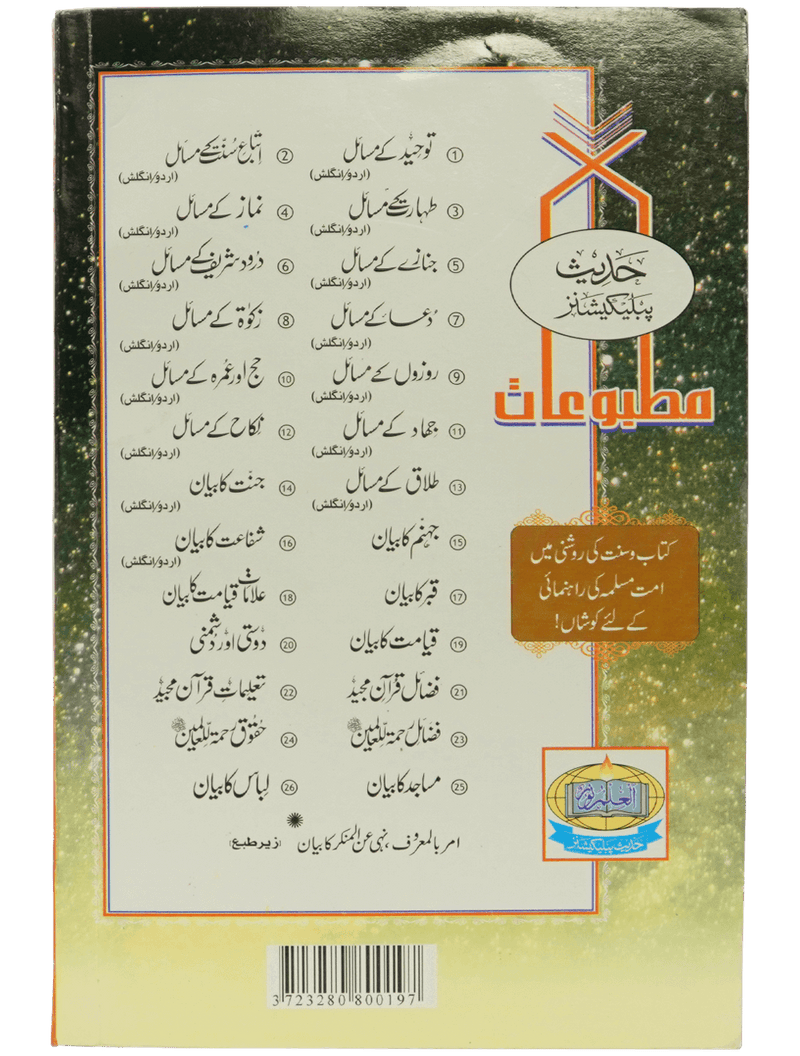 حدیث
پبلیکیشنز
مطبوعات
① توحید کے مسائل (اردو/انگلش)
② اتباعِ سُنت کے مسائل (اردو/انگلش)
③ طہارت کے مسائل (اردو/انگلش)
④ نماز کے مسائل (اردو/انگلش)
⑤ جنازے کے مسائل (اردو/انگلش)
⑥ درود شریف کے مسائل (اردو/انگلش)
⑦ دُعا کے مسائل (اردو/انگلش)
⑧ زکوٰۃ کے مسائل (اردو/انگلش)
⑨ روزوں کے مسائل (اردو/انگلش)
⑩ حج اور عمرہ کے مسائل (اردو/انگلش)
⑪ جہاد کے مسائل (اردو/انگلش)
⑫ نکاح کے مسائل (اردو/انگلش)
⑬ طلاق کے مسائل (اردو/انگلش)
⑭ جنت کا بیان (اردو/انگلش)
⑮ جہنم کا بیان
⑯ شفاعت کا بیان (اردو/انگلش)
⑰ قبر کا بیان
⑱ علاماتِ قیامت کا بیان
⑲ قیامت کا بیان
⑳ دوستی اور دشمنی
㉑ فضائل قرآن مجید
㉒ تعلیماتِ قرآن مجید
㉓ فضائل رحمۃ للعالمین ﷺ
㉔ حقوق رحمۃ للعالمین ﷺ
㉕ مساجد کا بیان
㉖ لباس کا بیان
امر بالمعروف، نہی عن المنکر کا بیان (زیر طبع)
کتاب و سنت کی روشنی میں
امت مسلمہ کی راہنمائی
کے لئے کوشاں!
العلم نور
حدیث پبلیکیشنز
3723280800197